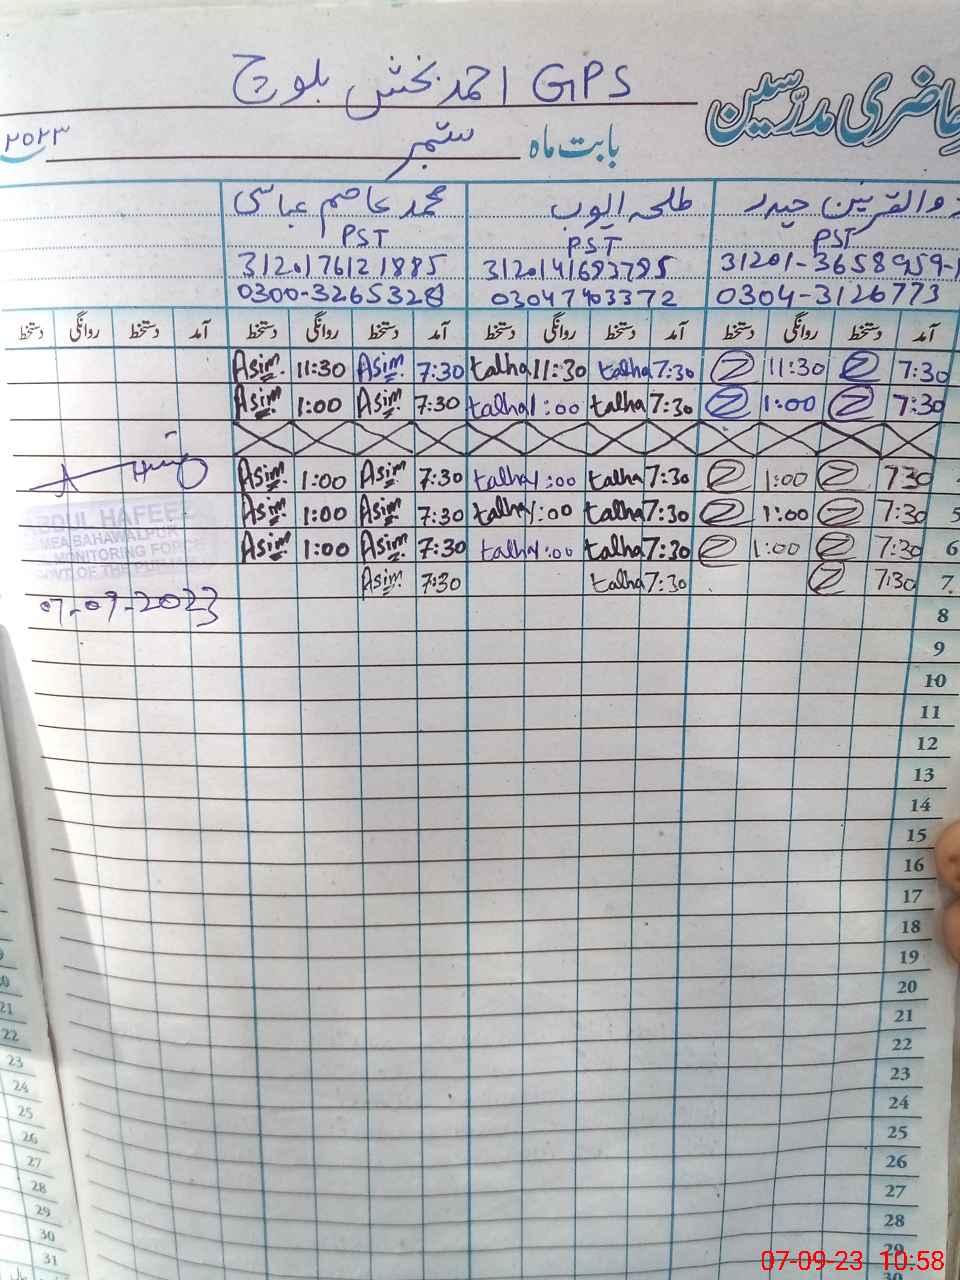 حاضری مدرسین
GPS احمد بخش بلوچ
بابت ماہ ستمبر ۲۰۲۳
ذوالقرنین حیدر طلحہ ایوب محمد عاصم عباسی
PST PST PST
31201-3658959-1 3120141683785 3120176121885
0304-3126773 03047403372 0300-3265328
آمد دستخط روانگی دستخط آمد دستخط روانگی دستخط آمد دستخط روانگی دستخط آمد دستخط روانگی دستخط
7:30 11:30 7:30 talha 11:30 talha 7:30 Asim 11:30 Asim
7:30 1:00 7:30 talha 1:00 talha 7:30 Asim 1:00 Asim
730 1:00 7:30 talha 1:00 talha 7:30 Asim 1:00 Asim
5 7:30 1:00 7:30 talha 1:00 talha 7:30 Asim 1:00 Asim
6 7:30 1:00 7:30 talha 1:00 talha 7:30 Asim 1:00 Asim
7 7:30 7:30 talha 7:30 Asim
ABDUL HAFEEZ
MEA BAHAWALPUR
MONITORING FORCE
GOVT OF THE
07-09-2023
8
9
10
11
12
13
14
15
16
17
18
19
20
21
22
23
24
25
26
27
28
29
30
21
22
23
24
25
26
27
28
29
30
31
07-09-23 10:58